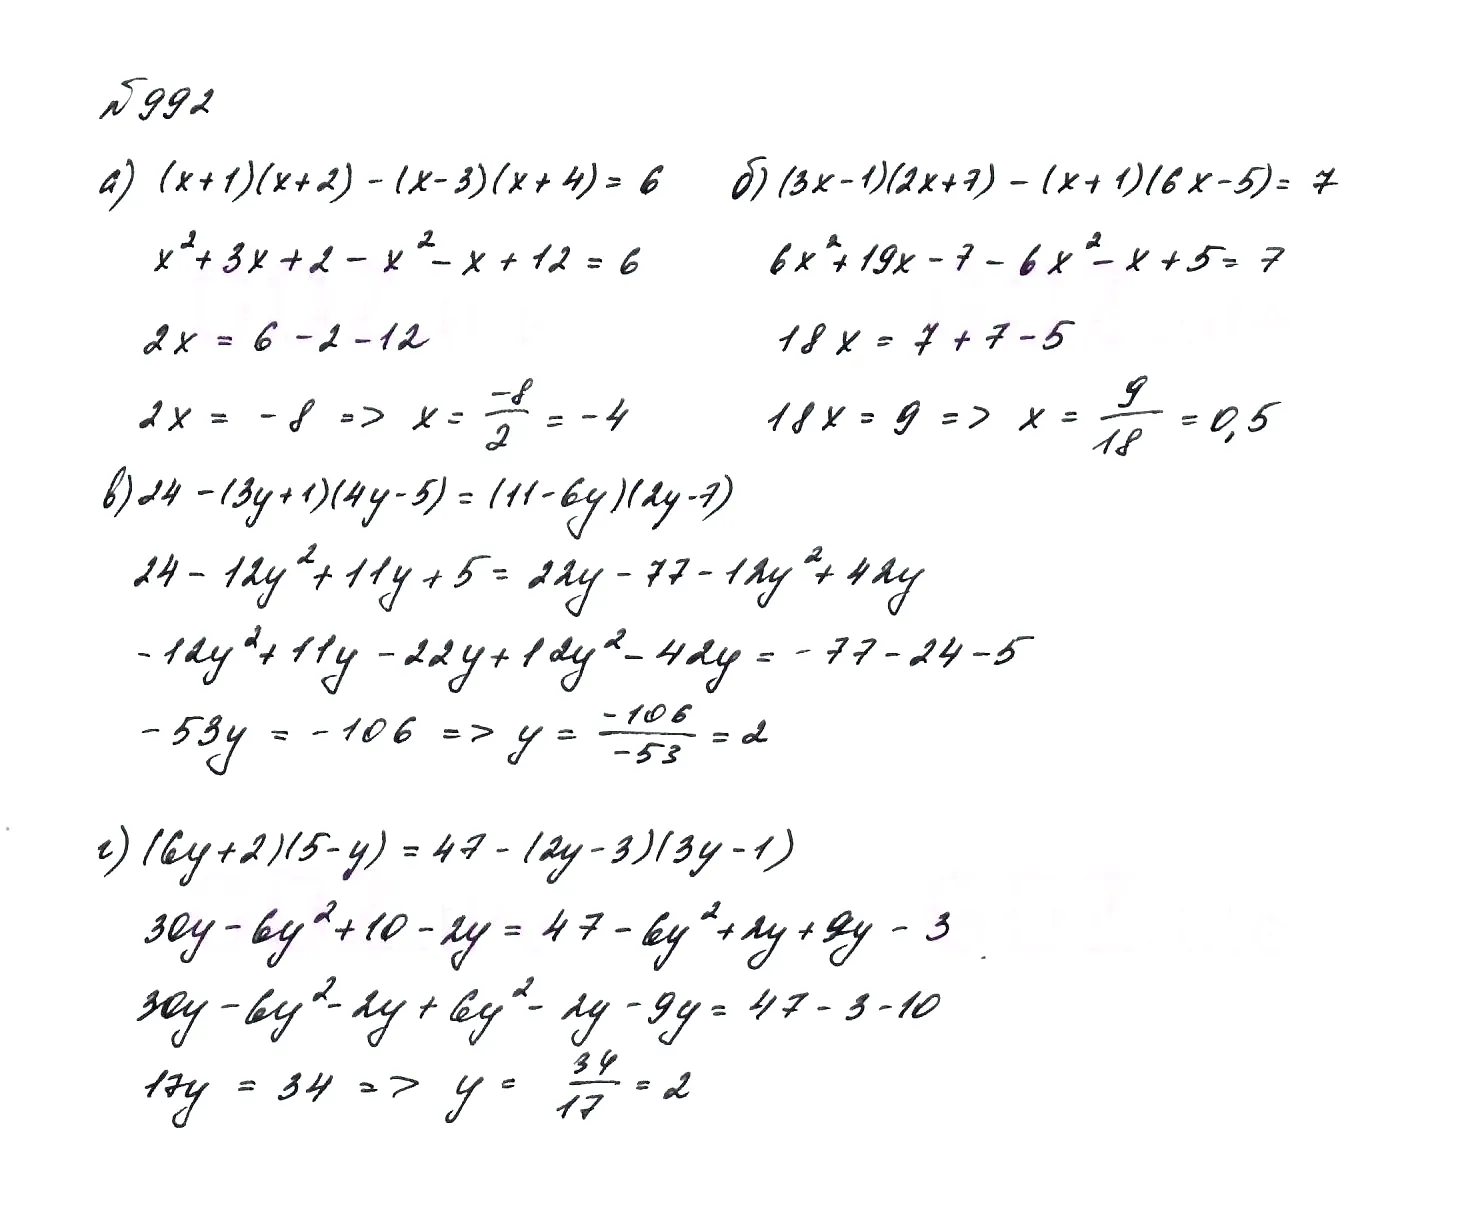 №992
а) (x+1)(x+2) - (x-3)(x+4) = 6
x²+3x+2-x²-x+12=6
2x = 6-2-12
2x = -8 => x = -8/2 = -4
б) (3x-1)(2x+7) - (x+1)(6x-5) = 7
6x²+19x-7-6x²-x+5=7
18x = 7+7-5
18x = 9 => x = 9/18 = 0,5
в) 24-(3y+1)(4y-5) = (11-6y)(2y-7)
24-12y²+11y+5 = 22y-77-12y²+42y
-12y²+11y-22y+12y²-42y = -77-24-5
-53y = -106 => y = -106/-53 = 2
г) (6y+2)(5-y) = 47-(2y-3)(3y-1)
30y-6y²+10-2y = 47-6y²+2y+9y-3
30y-6y²-2y+6y²-2y-9y = 47-3-10
17y = 34 => y = 34/17 = 2